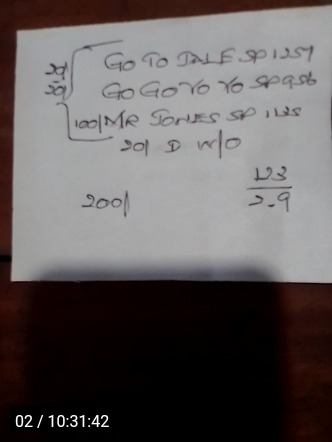 20/ GO TO JALE SP 1257
20/ GO GO YO YO SP 956
100/ MR JONES SP 1125
20/ D W/O
200/
123
2-9
02 / 10:31:42